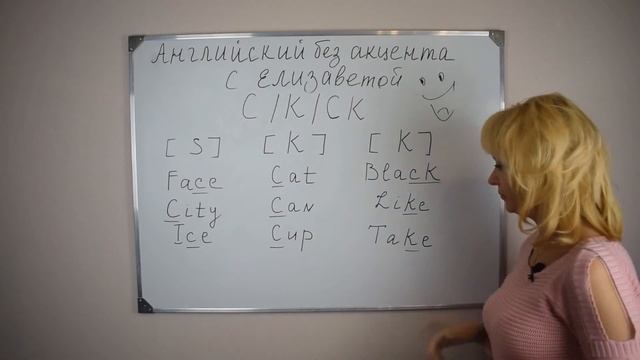 Английский без акцента
с Елизаветой
C/K/CK
[S] [K] [K]
Face Cat Black
City Can Like
Ice Cup Take